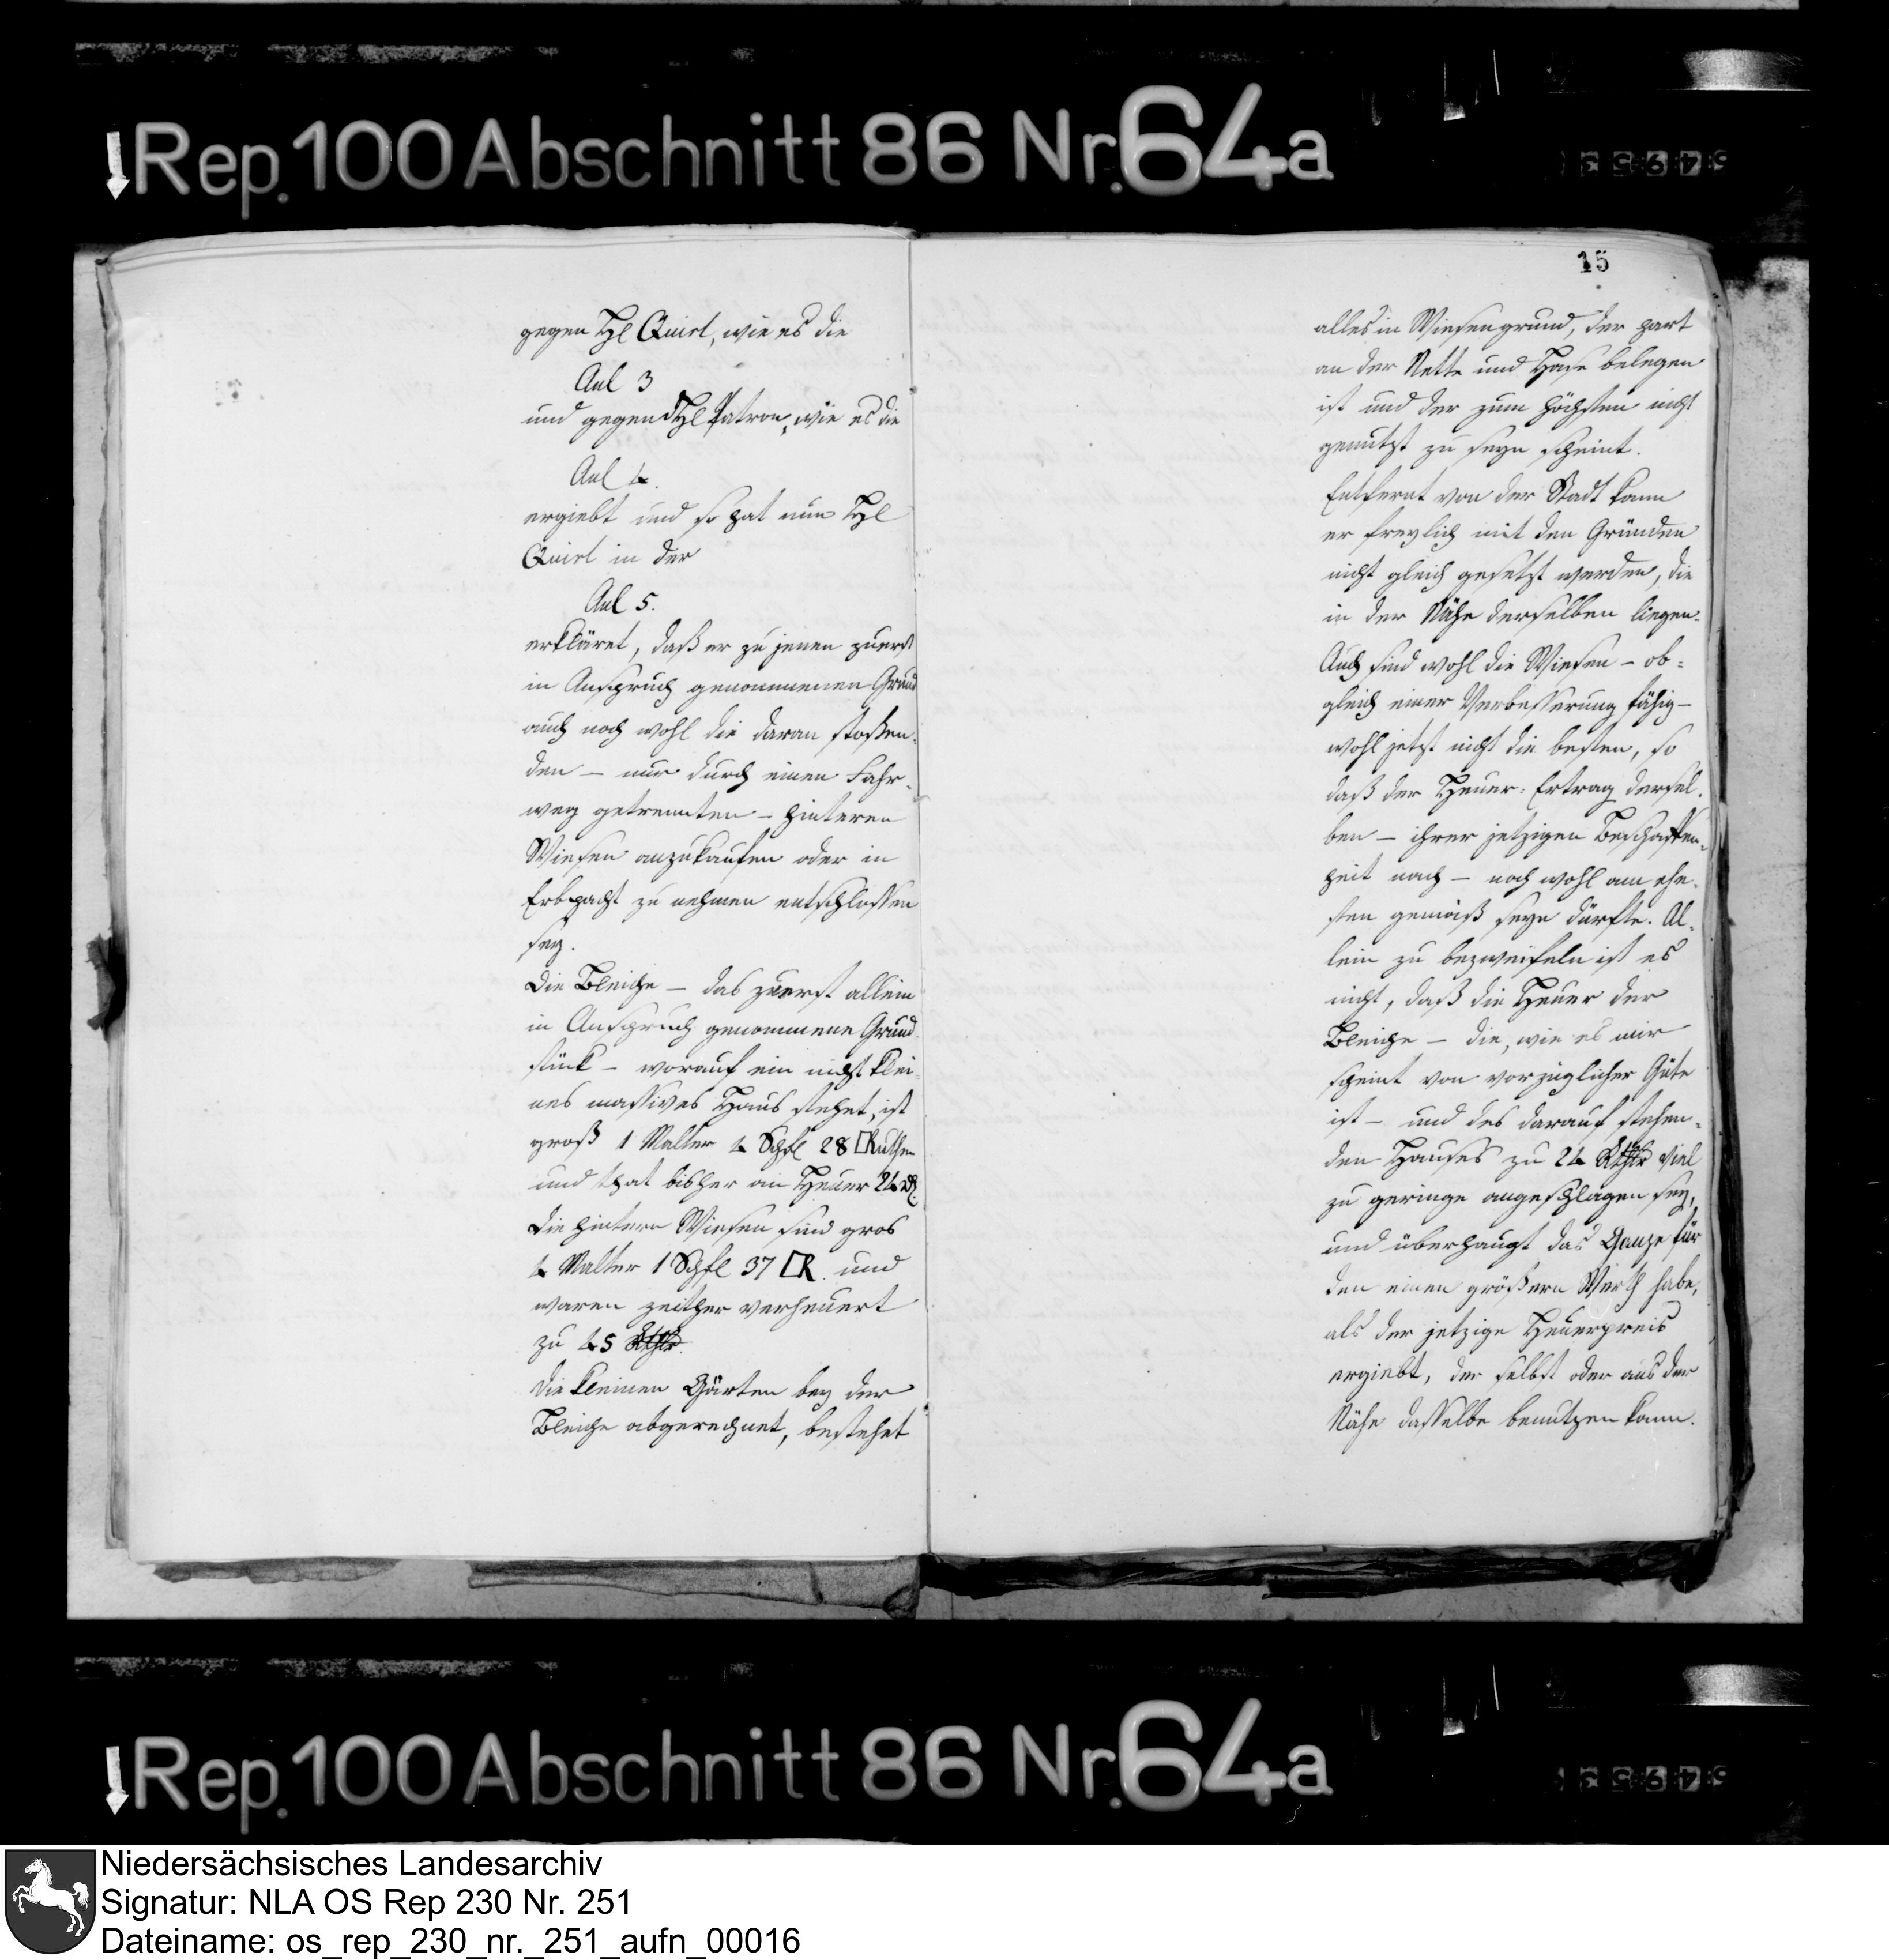 Rep. 100 Abschnitt 86 Nr. 64a
gegen Hl Quirl, wie es die
Anl 3
und gegen Hl Patron, wie es die
Anl 4.
ergiebt und so hat nun Hl
Quirl in der
Anl 5.
erkläret, daß er zu jenen zuerst
in Anspruch genommenen Grund
auch noch wohl die daran stoßen-
den – nur durch einen Fahr-
weg getrennten – hinteren
Wiesen anzukaufen oder in
Erbpacht zu nehmen entschlossen
sey.
Die Bleiche – das zuerst allein
in Anspruch genommene Grund-
stück – worauf ein nicht klei-
nes massives Haus stehet, ist
groß 1 Malter 4 Schfl 28 □Ruthen
und that bisher an Heuer 24 rt.
Die hintern Wiesen sind gros
4 Malter 1 Schfl 37 □R. und
waren zeither verheuert
zu 45 Rthlr.
Die kleinen Gärten bey der
Bleiche abgerechnet, bestehet
15
alles in Wiesengrund, der hart
an der Nette und Hase belegen
ist und der zum höchsten nicht
genutzt zu seyn scheint.
Entfernt von der Stadt kann
er freylich mit den Gründen
nicht gleich gesetzt werden, die
in der Nähe derselben liegen.
Auch sind wohl die Wiesen – ob-
gleich einer Verbesserung fähig –
wohl jetzt nicht die besten, so
daß der Heuer-Ertrag dersel-
ben – ihrer jetzigen Beschaffen-
heit nach – noch wohl am ehe-
sten gemäß seyn dürfte. Al-
lein zu bezweifeln ist es
nicht, daß die Heuer der
Bleiche – die, wie es mir
scheint von vorzüglicher Güte
ist – und des darauf stehen-
den Hauses zu 24 Rthlr viel
zu geringe angeschlagen sey,
und überhaupt das Ganze für
den einen größern Werth habe,
als der jetzige Heuerpreis
ergiebt, der selbst oder aus der
Nähe dasselbe benutzen kann.
Rep. 100 Abschnitt 86 Nr. 64a
Niedersächsisches Landesarchiv
Signatur: NLA OS Rep 230 Nr. 251
Dateiname: os_rep_230_nr._251_aufn_00016